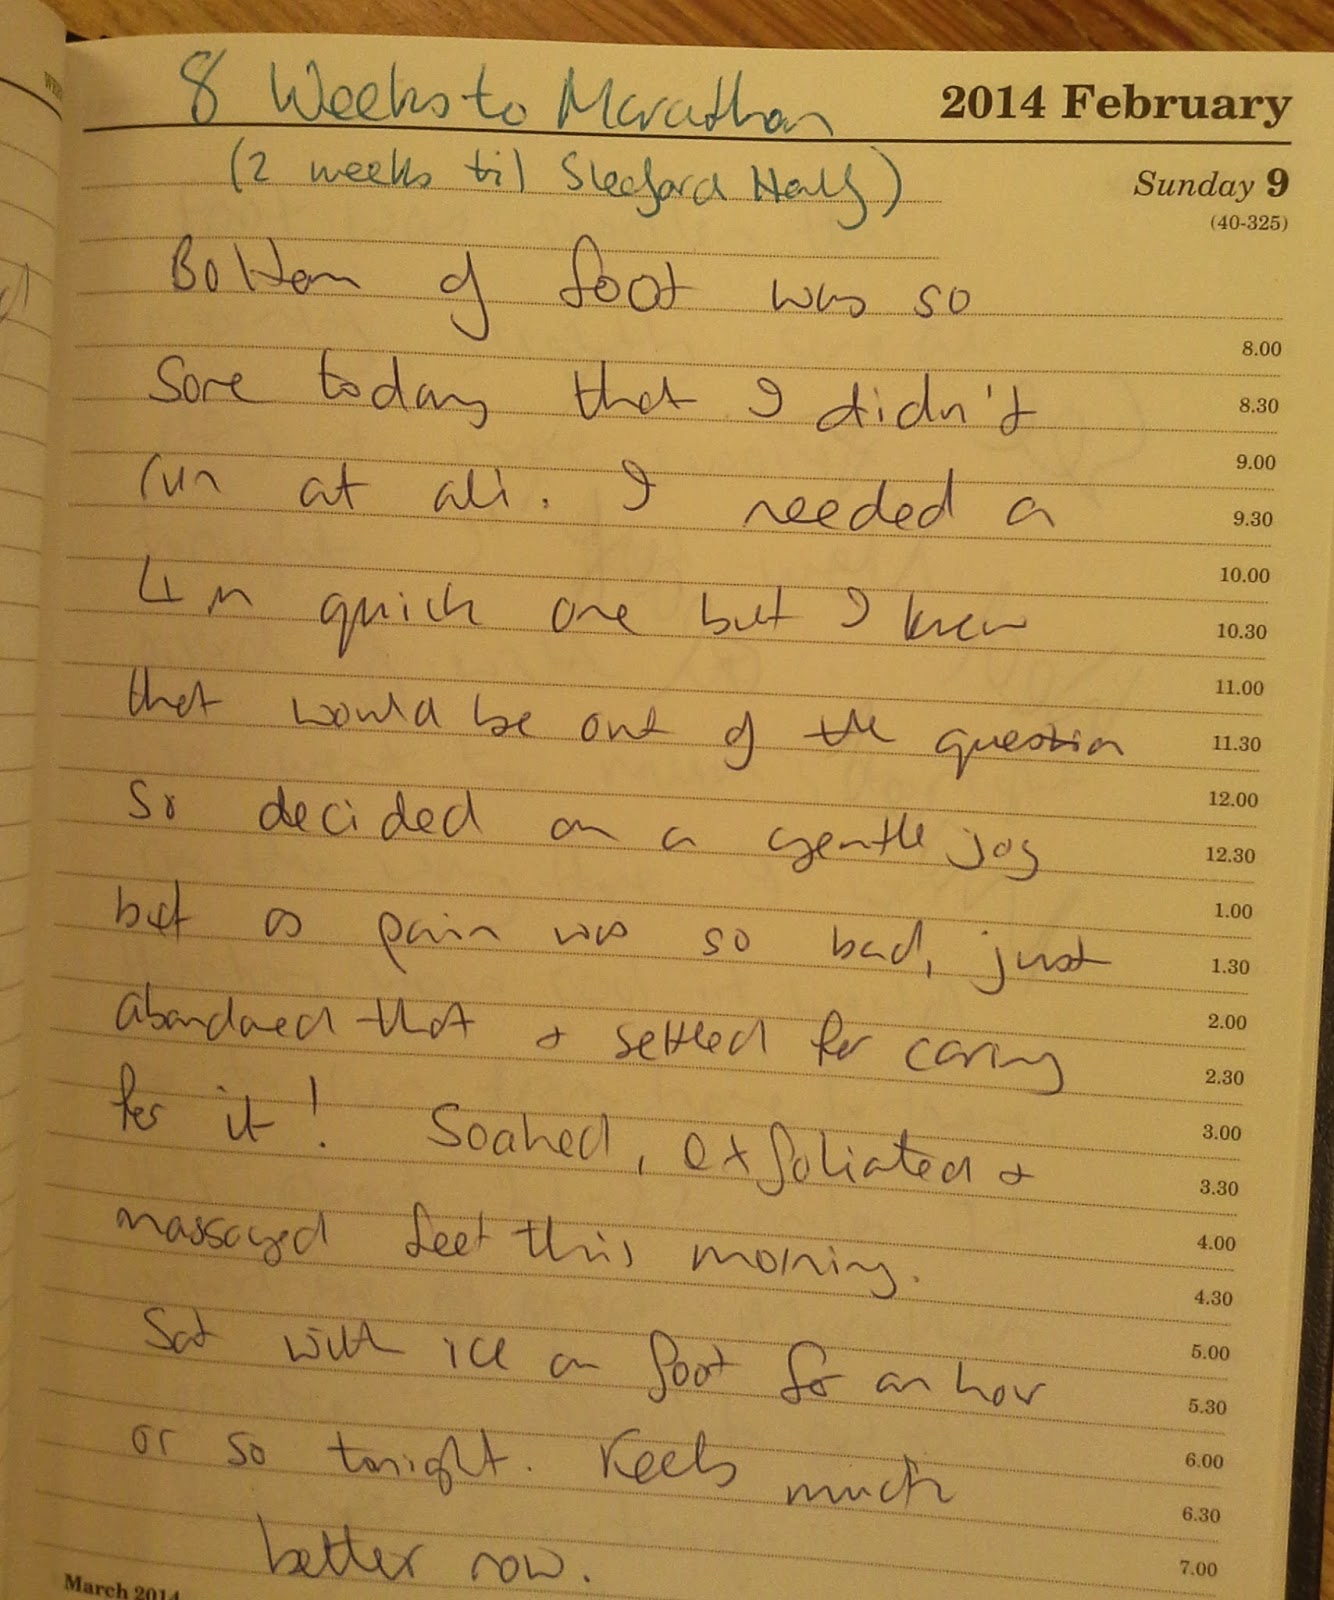 8 Weeks to Marathon
2014 February
(2 weeks til Sleaford Half)
Sunday 9
(40-325)
Bottom of foot was so
8.00
sore today that I didn't
8.30
9.00
run at all. I needed a
9.30
10.00
4m quick one but I knew
10.30
11.00
that would be out of the question
11.30
12.00
so decided on a gentle jog
12.30
1.00
but as pain was so bad, just
1.30
2.00
abandoned that + settled for caring
2.30
for it! Soaked, exfoliated +
3.00
3.30
massaged feet this morning.
4.00
4.30
Sat with ice on foot for an hour
5.00
5.30
or so tonight. Feels much
6.00
6.30
better now.
7.00
March 2014